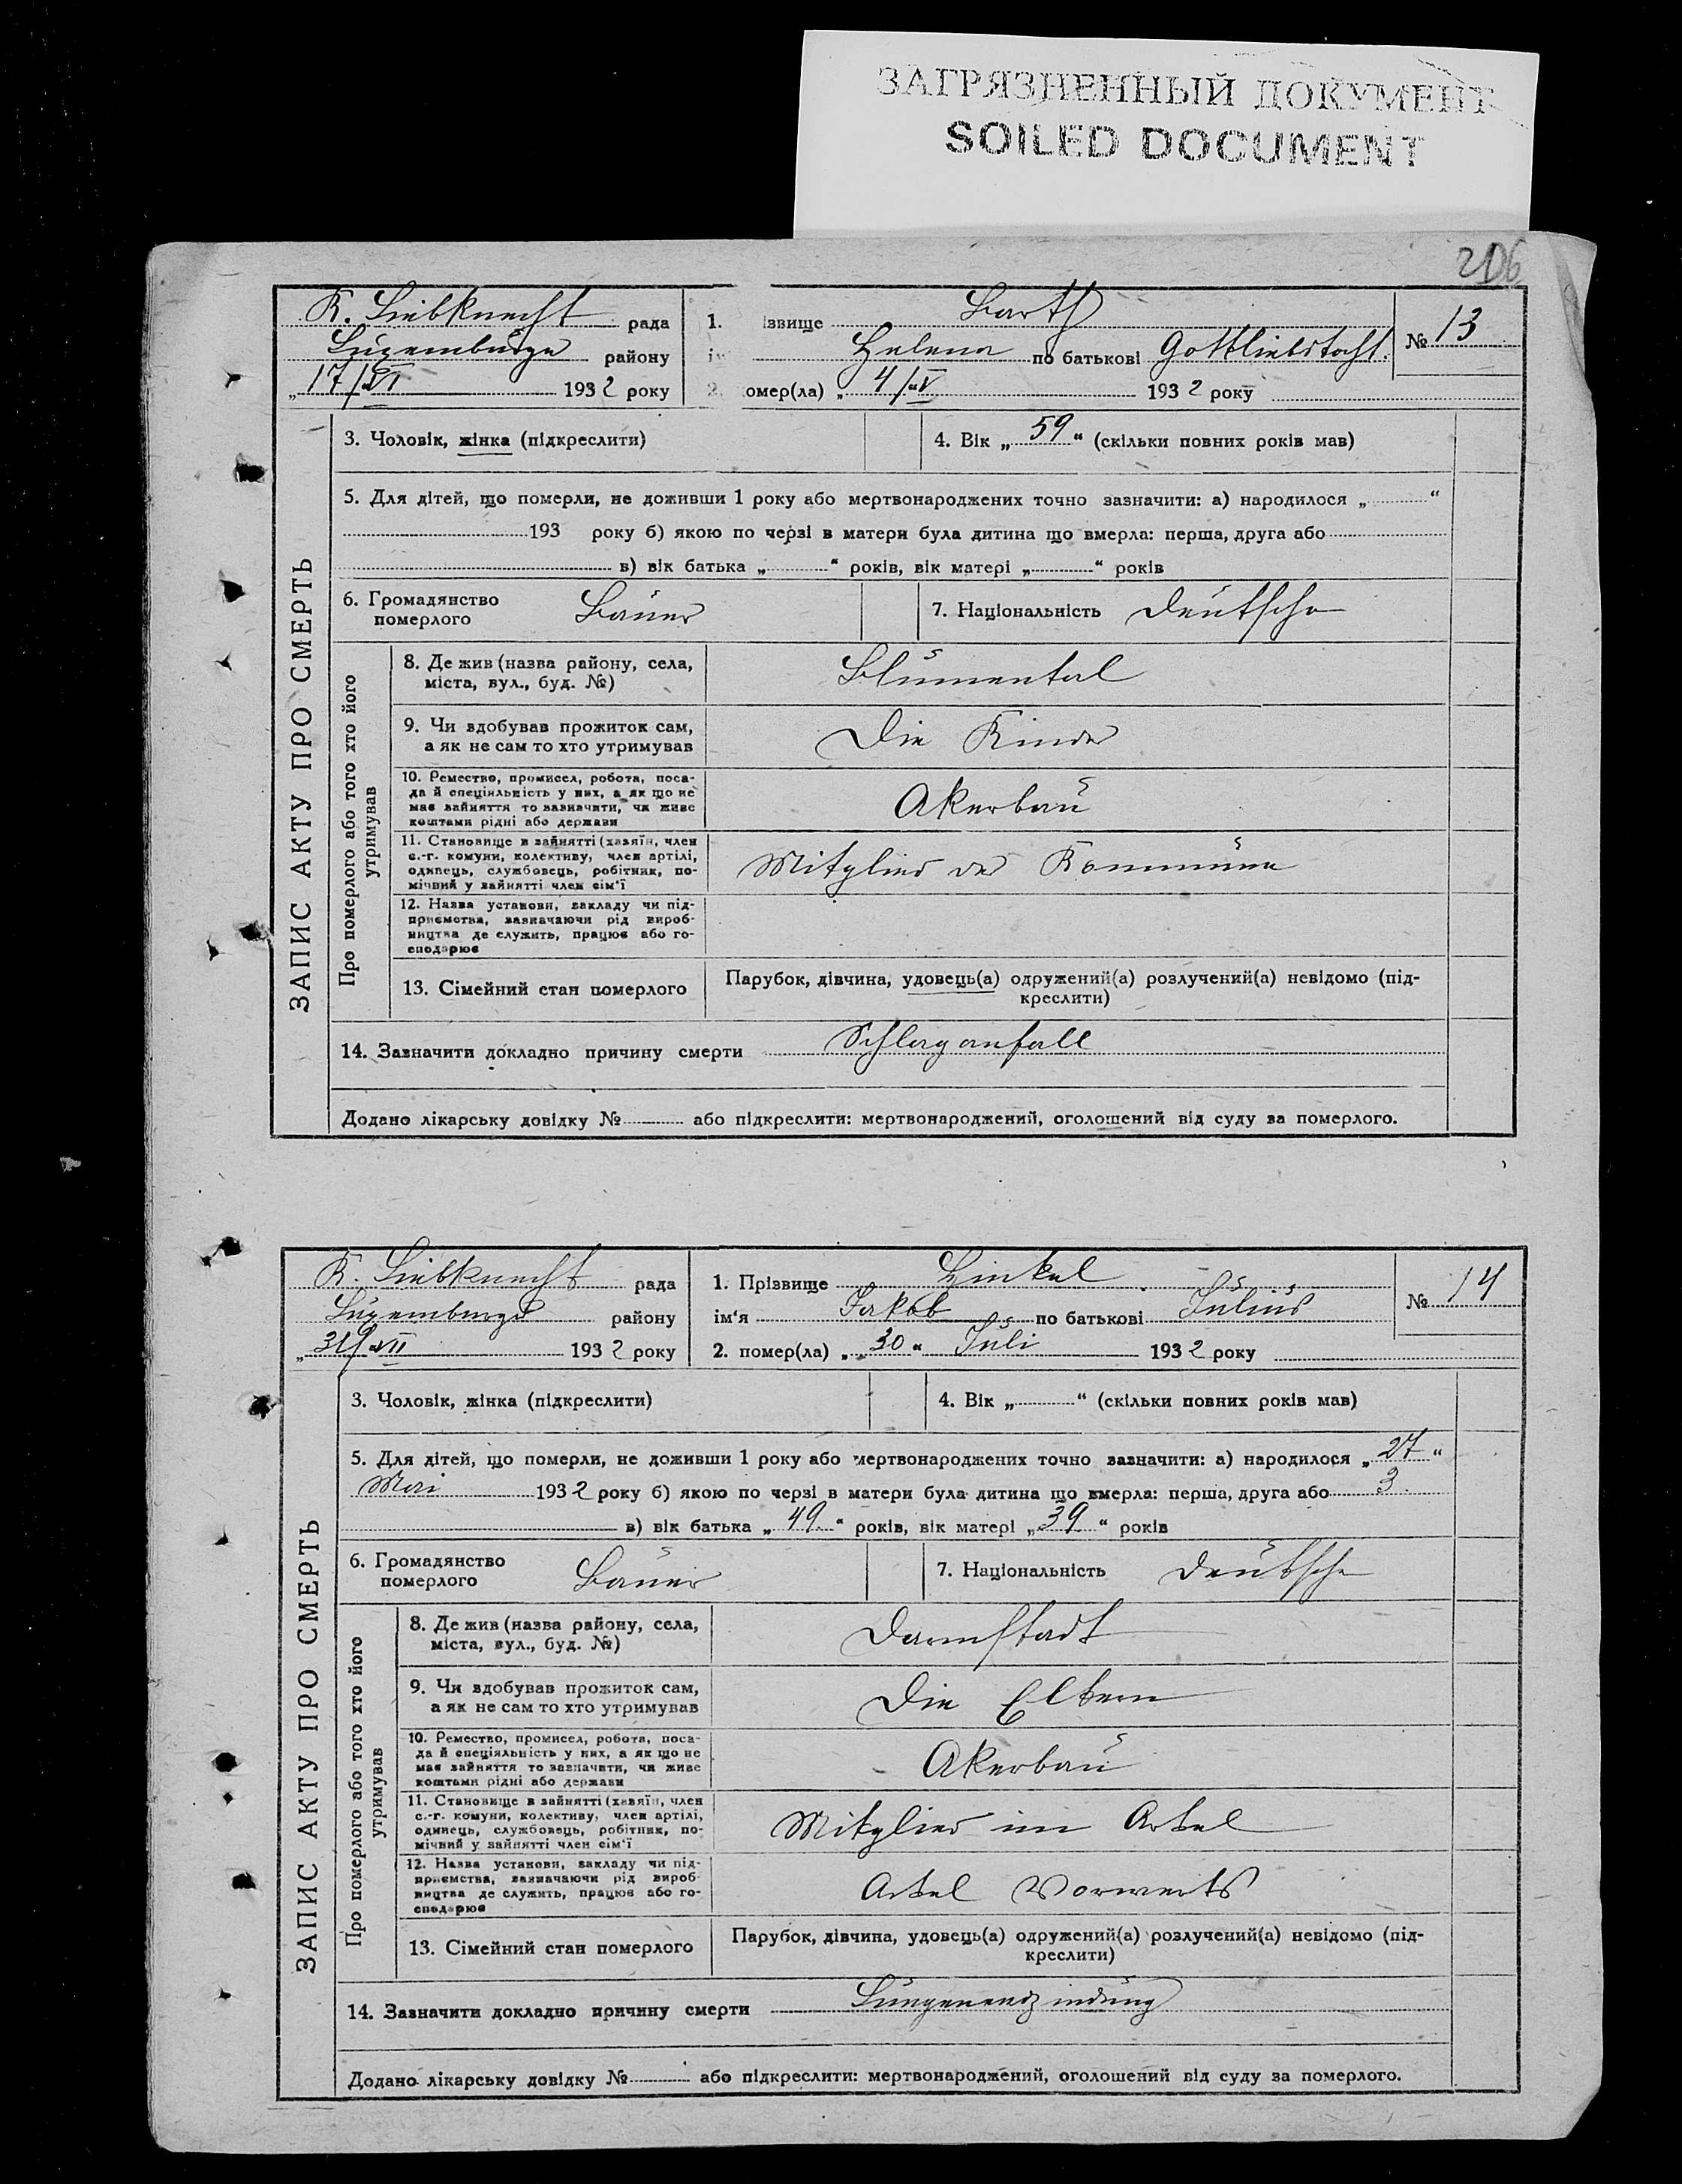 ЗАГРЯЗНЕННЫЙ ДОКУМЕНТ
SOILED DOCUMENT
206
K. Liebknecht рада
Luxemburger району
„ 17/VI 1932 року
1. ізвище Barth
Helena по батькові Gottliebstocht.
омер(ла) „ 4/V 1932 року
№ 13
ЗАПИС АКТУ ПРО СМЕРТЬ
3. Чоловік, жінка (підкреслити)
4. Вік „ 59 “ (скільки повних років мав)
5. Для дітей, що померли, не доживши 1 року або мертвонароджених точно зазначити: а) народилося „ “
193 року б) якою по черзі в матери була дитина що вмерла: перша, друга або
в) вік батька „ “ років, вік матері „ “ років
6. Громадянство померлого Bauer
7. Національність Deutsche
Про померлого або того хто його утримував
8. Де жив (назва району, села,
міста, вул., буд. №) Blumental
9. Чи здобував прожиток сам,
а як не сам то хто утримував Die Kinder
10. Ремество, промисел, робота, поса-
да й спеціяльність у них, а як що не
має зайняття то зазначити, чи живе
коштами рідні або держави Akerbau
11. Становище в зайнятті (хазяїн, член
с.-г. комуни, колективу, член артілі,
одинець, службовець, робітник, по-
мічний у зайнятті член сім‘ї Mitglied der Kommune
12. Назва установи, закладу чи під-
приємства, зазначаючи рід вироб-
ництва де служить, працює або го-
сподарює
13. Сімейний стан померлого
Парубок, дівчина, удовець(а) одружений(а) розлучений(а) невідомо (під-
креслити)
14. Зазначити докладно причину смерти Schlaganfall
Додано лікарську довідку № або підкреслити: мертвонароджений, оголошений від суду за померлого.
K. Liebknecht рада
Luxemburger району
„ 31/VII 1932 року
1. Прізвище Hinkel
ім‘я Jakob по батькові Julius
2. помер(ла) „ 30 “ Juli 1932 року
№ 14
ЗАПИС АКТУ ПРО СМЕРТЬ
3. Чоловік, жінка (підкреслити)
4. Вік „ “ (скільки повних років мав)
5. Для дітей, що померли, не доживши 1 року або мертвонароджених точно зазначити: а) народилося „ 27 “
Mai 1932 року б) якою по черзі в матери була дитина що вмерла: перша, друга або 3.
в) вік батька „ 49 “ років, вік матері „ 39 “ років
6. Громадянство померлого Bauer
7. Національність Deutsche
Про померлого або того хто його утримував
8. Де жив (назва району, села,
міста, вул., буд. №) Darmstadt
9. Чи здобував прожиток сам,
а як не сам то хто утримував Die Eltern
10. Ремество, промисел, робота, поса-
да й спеціяльність у них, а як що не
має зайняття то зазначити, чи живе
коштами рідні або держави Akerbau
11. Становище в зайнятті (хазяїн, член
с.-г. комуни, колективу, член артілі,
одинець, службовець, робітник, по-
мічний у зайнятті член сім‘ї Mitglied im Artel
12. Назва установи, закладу чи під-
приємства, зазначаючи рід вироб-
ництва де служить, працює або го-
сподарює Artel Vorwerts
13. Сімейний стан померлого
Парубок, дівчина, удовець(а) одружений(а) розлучений(а) невідомо (під-
креслити)
14. Зазначити докладно причину смерти Lungenendzindung
Додано лікарську довідку № або підкреслити: мертвонароджений, оголошений від суду за померлого.